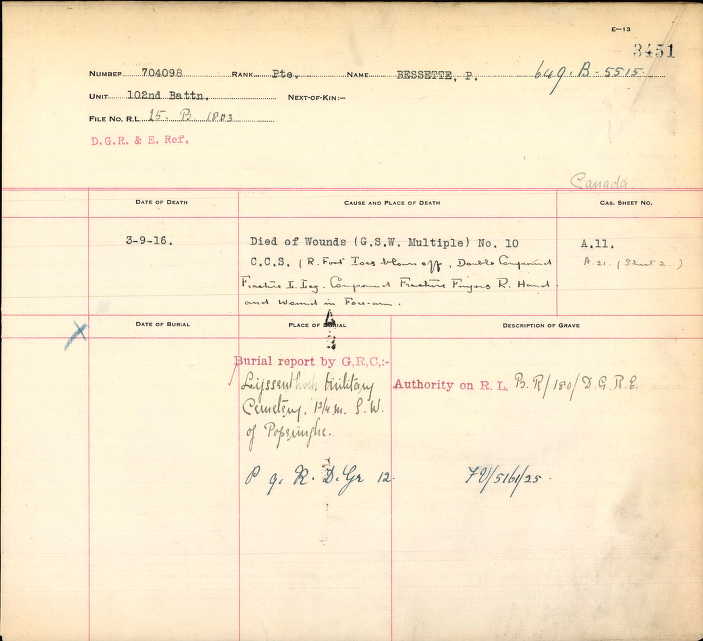 E-13
3451
NUMBER 704098 RANK Pte. NAME BESSETTE, P. 649-B-5515
UNIT 102nd Battn. NEXT-OF-KIN:-
FILE NO. R.L. 25. B 1803
D.G.R. & E. Ref.
Canada
DATE OF DEATH CAUSE AND PLACE OF DEATH CAS. SHEET NO.
3-9-16. Died of Wounds (G.S.W. Multiple) No. 10 A.11.
C.C.S. (R. Foot Toes blown off, Double Compound A.21. (Sheet 2)
Fracture L. Leg. Compound Fracture Fingers R. Hand
and Wound in Fore-arm.
DATE OF BURIAL PLACE OF BURIAL DESCRIPTION OF GRAVE
Burial report by G.R.C.:-
Lijssenthoek Military Authority on R.L. B.R/180/D.G.R.E.
Cemetery. 1 3/4 m. S.W.
of Poperinghe.
P 9. R. D. Gr 12. 72/5161/25.